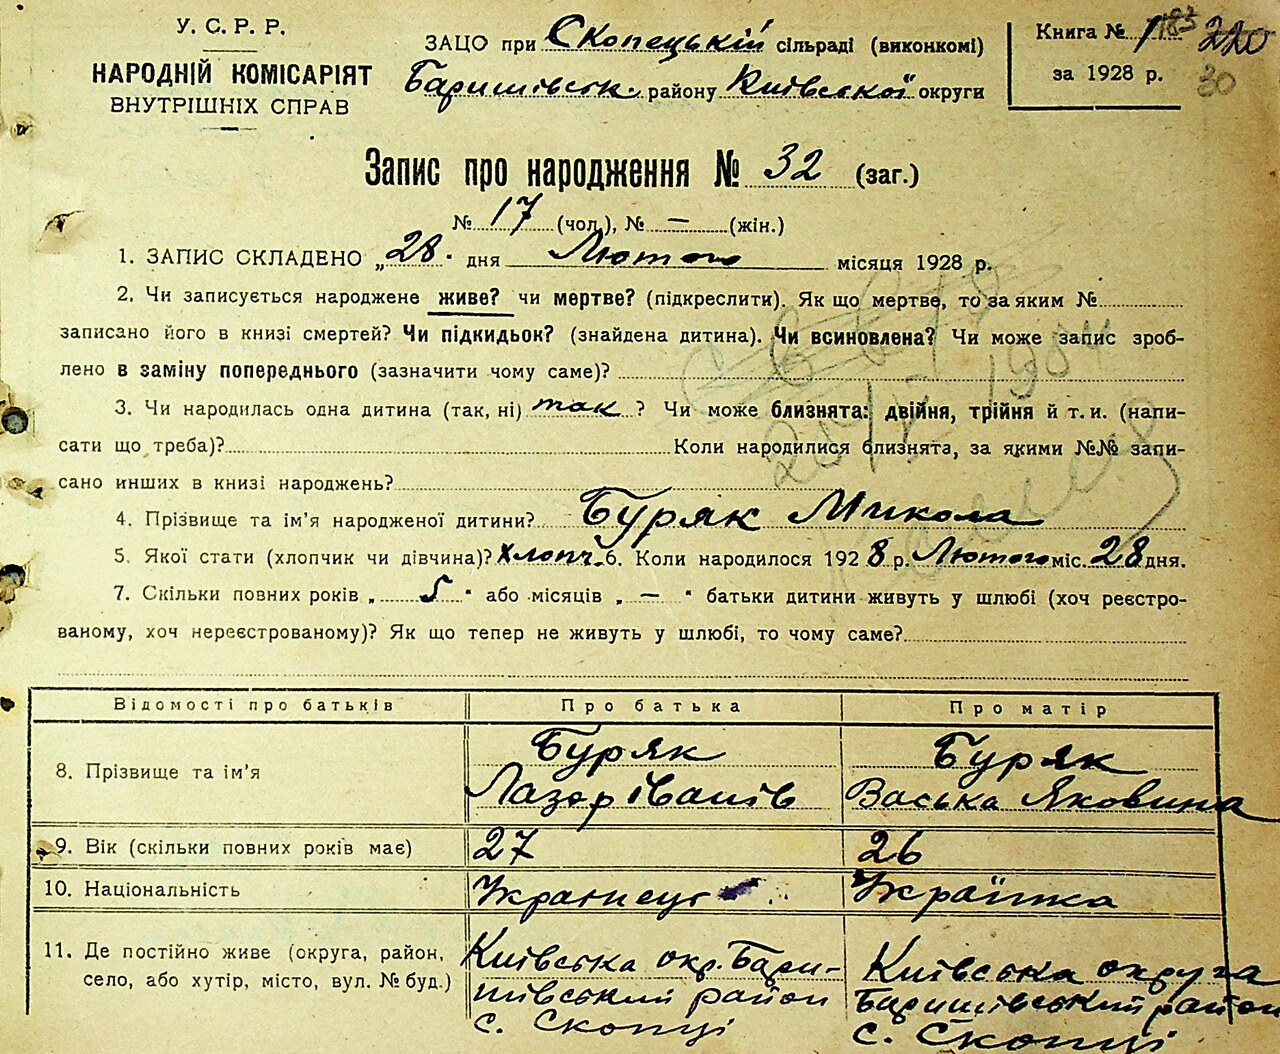 У. С. Р. Р.
НАРОДНІЙ КОМІСАРІЯТ
ВНУТРІШНІХ СПРАВ
ЗАЦО при Скопецькій сільраді (виконкомі)
Баришівськ. району Київської округи
Книга № 1 183 220
за 1928 р. 30
Запис про народження № 32 (заг.)
№ 17 (чол.), № — (жін.)
1. ЗАПИС СКЛАДЕНО „28" дня Лютого місяця 1928 р.
2. Чи записується народжене живе? чи мертве? (підкреслити). Як що мертве, то за яким №
записано його в книзі смертей? Чи підкидьок? (знайдена дитина). Чи всиновлена? Чи може запис зроб-
лено в заміну попереднього (зазначити чому саме)?
3. Чи народилась одна дитина (так, ні) так ? Чи може близнята: двійня, трійня й т. и. (напи-
сати що треба)? Коли народилися близнята, за якими №№ запи-
сано инших в книзі народжень?
4. Прізвище та ім'я народженої дитини? Буряк Микола
5. Якої стати (хлопчик чи дівчина)? Хлопч. 6. Коли народилося 1928 р. Лютого міс. 28 дня.
7. Скільки повних років „ 5 " або місяців „ — " батьки дитини живуть у шлюбі (хоч реєстро-
ваному, хоч нереєстрованому)? Як що тепер не живуть у шлюбі, то чому саме?
Відомості про батьків Про батька Про матір
8. Прізвище та ім'я
Буряк
Лазар Іванів
Буряк
Васька Яковина
9. Вік (скільки повних років має) 27 26
10. Національність Украинець Українка
11. Де постійно живе (округа, район,
село, або хутір, місто, вул. № буд.)
Київська окр. Бари-
шівський район
с. Скопці
Київська округа
Баришівський район
с. Скопці